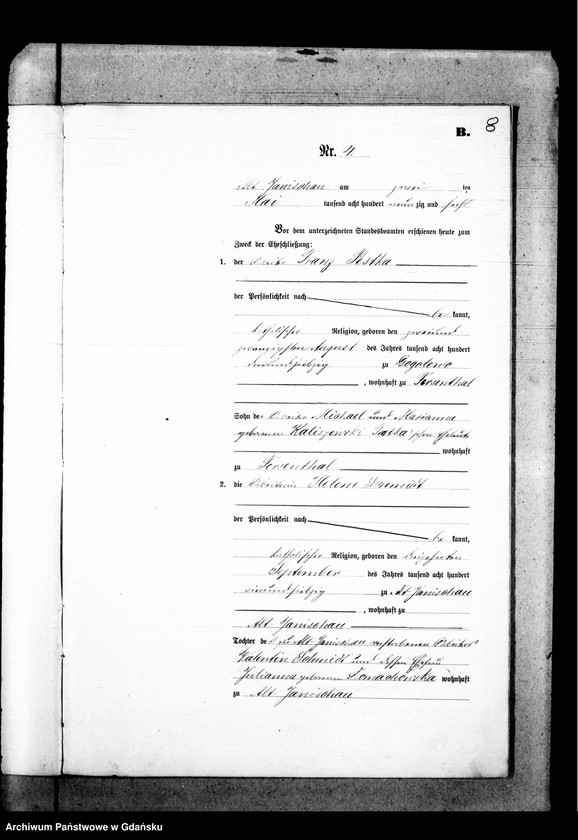 B. 8
Nr. 4.
Alt Janischau am zwei ten
Mai tausend acht hundert neunzig und sechs
Vor dem unterzeichneten Standesbeamten erschienen heute zum
Zweck der Eheschließung:
1. der Franz
der Persönlichkeit nach
be kannt,
katholischer Religion, geboren den zweiund-
zwanzigsten August des Jahres tausend acht hundert
dreiundsiebzig zu Gogolewo
, wohnhaft zu Fersenthal
Sohn der Michael und Marianna
geborenen Kaliszewski 'schen Eheleute
wohnhaft
zu Fersenthal
2. die Helene
der Persönlichkeit nach
be kannt,
katholischer Religion, geboren den dreizehnten
September des Jahres tausend acht hundert
vierundsiebzig zu Alt Janischau
, wohnhaft zu
Alt Janischau
Tochter des zu Alt Janischau verstorbenen Arbeiters
Valentin Schmidt und dessen Ehefrau
Julianna geborenen Tomachowska wohnhaft
zu Alt Janischau
Archiwum Państwowe w Gdańsku